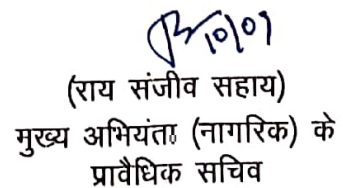 10/07
(राय संजीव सहाय)
मुख्य अभियंता (नागरिक) के
प्रावैधिक सचिव